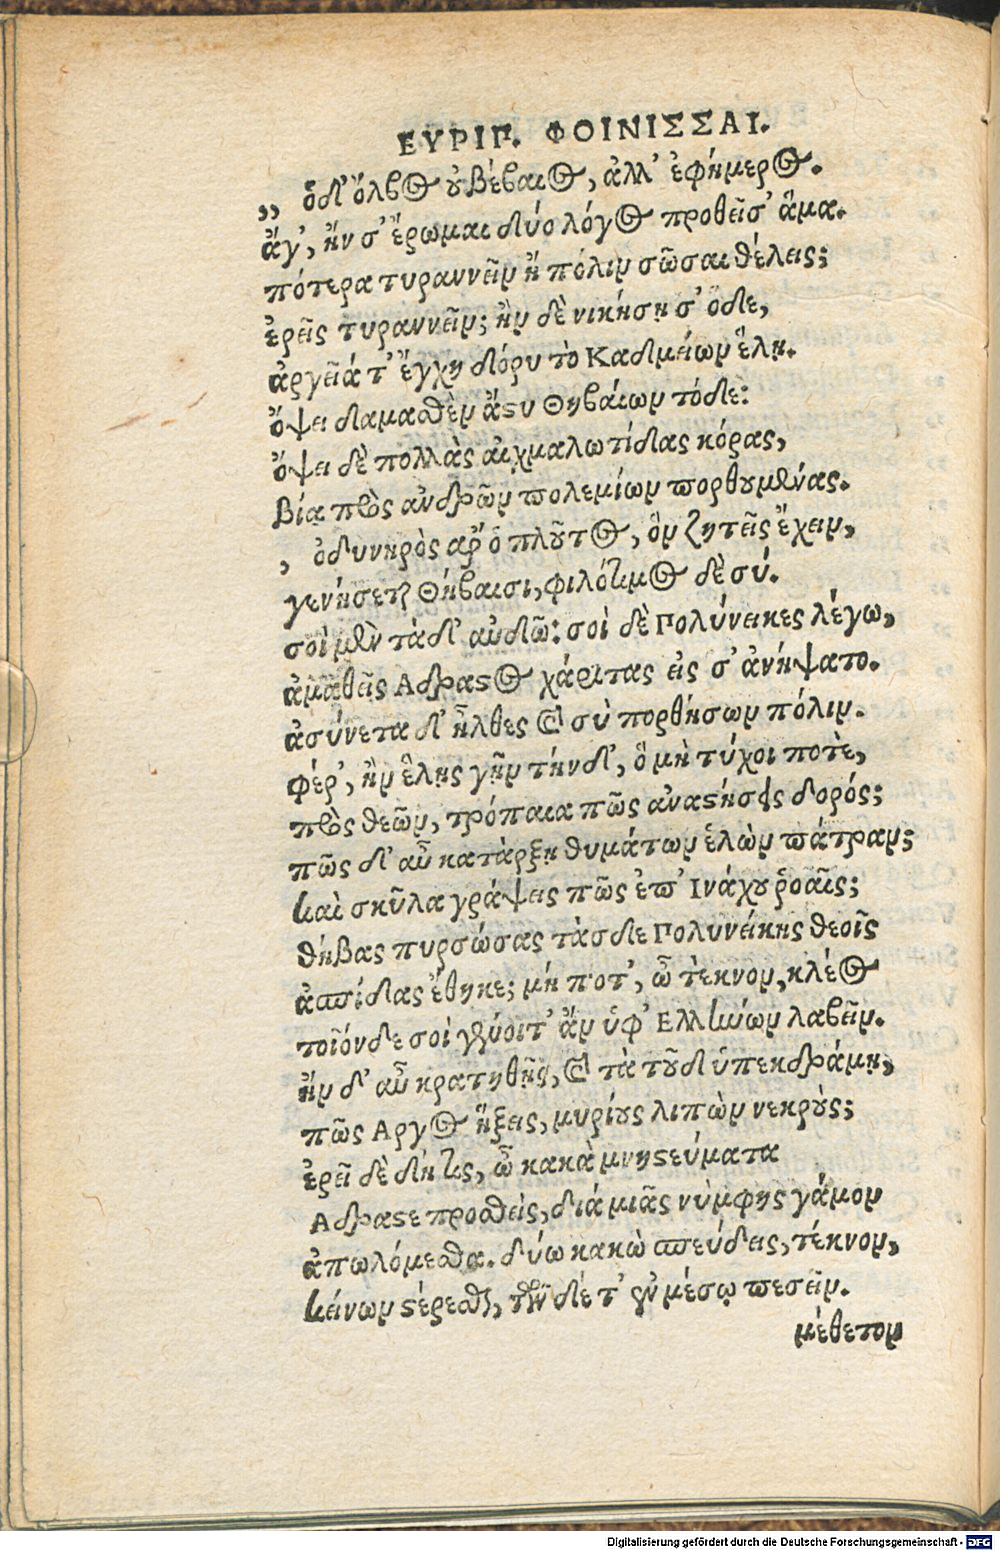 ΕΥΡΙΠ. ΦΟΙΝΙΣΣΑΙ.
,, ὁδ' ὄλβος οὐ βέβαιος, ἀλλ' ἐφήμερος.
ἄγ', ἤν σ' ἔρωμαι δύο λόγος προθεῖσ' ἅμα.
πότερα τυραννεῖν ἢ πόλιν σῶσαι θέλεις;
ἐρεῖς τυραννεῖν; ἢν δὲ νικήσῃ σ' ὅδε,
ἀργεῖά τ' ἔγχη δόρυ τὸ Καδμείων ἕλῃ.
ὄψει δαμασθὲν ἄστυ Θηβαίων τόδε:
ὄψει δὲ πολλὰς αἰχμαλωτίδας κόρας,
βίᾳ πρὸς ἀνδρῶν πολεμίων πορθουμένας.
, ὀδυνηρὸς ἀρ' ὁ πλοῦτος, ὃν ζητεῖς ἔχειν,
γενήσεται Θήβαισι, φιλότιμος δὲ σύ.
σοὶ μὲν τὰ δ' αὐδῶ: σοὶ δὲ Πολύνεικες λέγω,
ἀμαθεῖς Αδραστος χάριτας εἰς σ' ἀνήψατο.
ἀσύνετα δ' ἦλθες καὶ σὺ πορθήσων πόλιν.
φέρ', ἢν ἕλῃς γῆν τήνδ', ὃ μὴ τύχοι ποτὲ,
πρὸς θεῶν, τρόπαια πῶς ἀναστήσεις δορός;
πῶς δ' αὖ κατάρξῃ θυμάτων ἑλὼν πάτραν;
καὶ σκῦλα γράψεις πῶς ἐπ' Ινάχου ῥοαῖς;
θήβας πυρσώσας τὰσδε Πολυνείκης θεοῖς
ἀσπίδας ἔθηκε; μή ποτ', ὦ τὲκνον, κλέος
τοῖόνδε σοὶ γένοιτ' ἂν ὑφ' Ελλήνων λαβεῖν.
ἢν δ' αὖ κρατηθῇς, καὶ τὰ τοῦδ' ὑπεκδράμῃ,
πῶς Αργος ἥξεις, μυρίους λιπὼν νεκροὺς;
ἐρεῖ δὲ δή τις, ὦ κακὰ μνηστεύματα
Αδραστε προσθεὶς, διὰ μιᾶς νύμφης γάμον
ἀπωλόμεσθα. δύω κακὼ σπεύδεις, τέκνον,
κείνων στέρεσθαι, τῶνδέ τ' ἐν μέσῳ πεσεῖν.
μέθετον
Digitalisierung gefördert durch die Deutsche Forschungsgemeinschaft - DFG